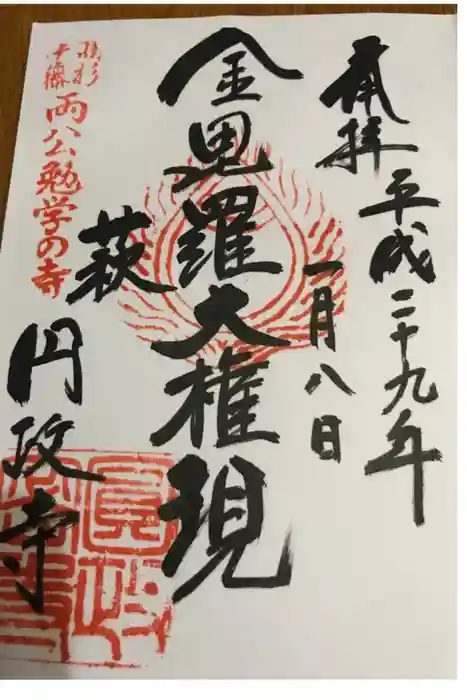 奉拝
平成二十九年
一月八日
金毘羅大権現
萩
円政寺
両公勉学の寺
圓政寺